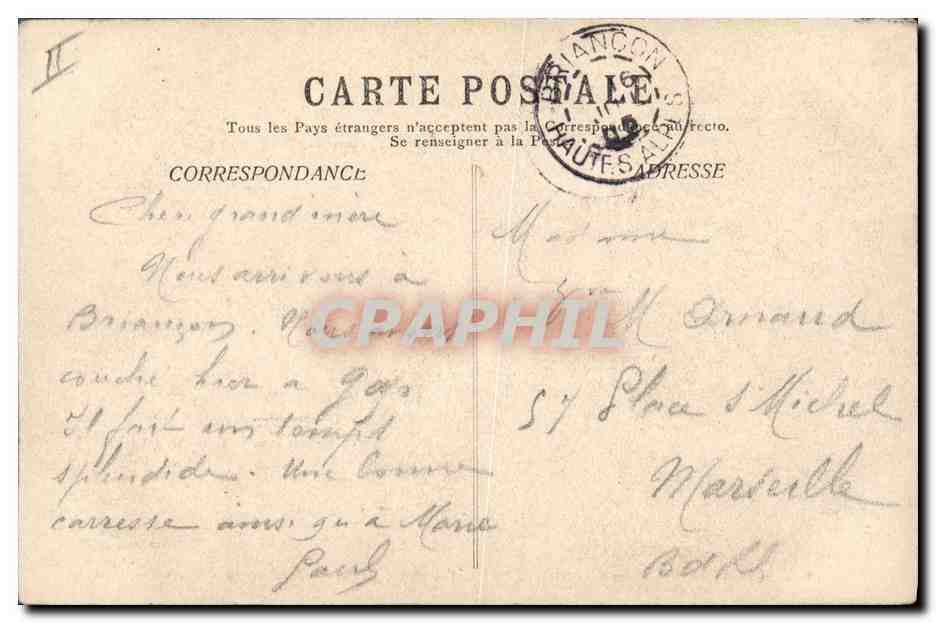 II
CARTE POSTALE
Tous les Pays étrangers n'acceptent pas la Correspondance au recto.
Se renseigner à la Poste
BRIANÇON
HAUTES ALPES
CORRESPONDANCE
Cher grand mère
Nous arrivons à
Briançon. Nous avons
couché hier a Gap
Il fait un temps
splendide. Une bonne
carresse ainsi qu'à Marie
ADRESSE
Madame
M Arnaud
57 Place St Michel
Marseille
B d Rh
CPAPHIL